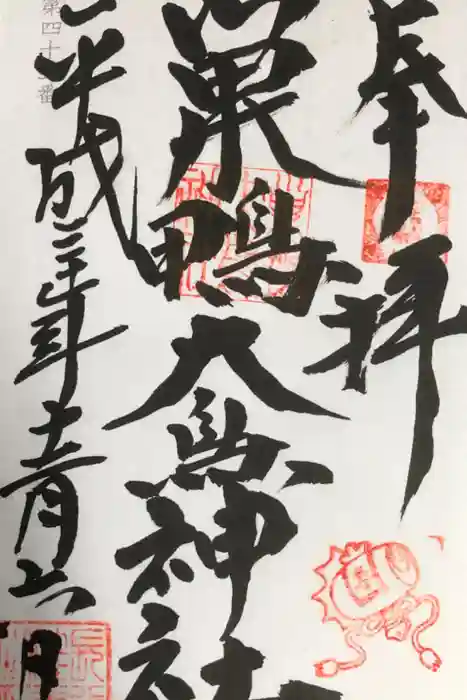 奉拝
巣鴨大鳥神社
平成三十年十一月六日